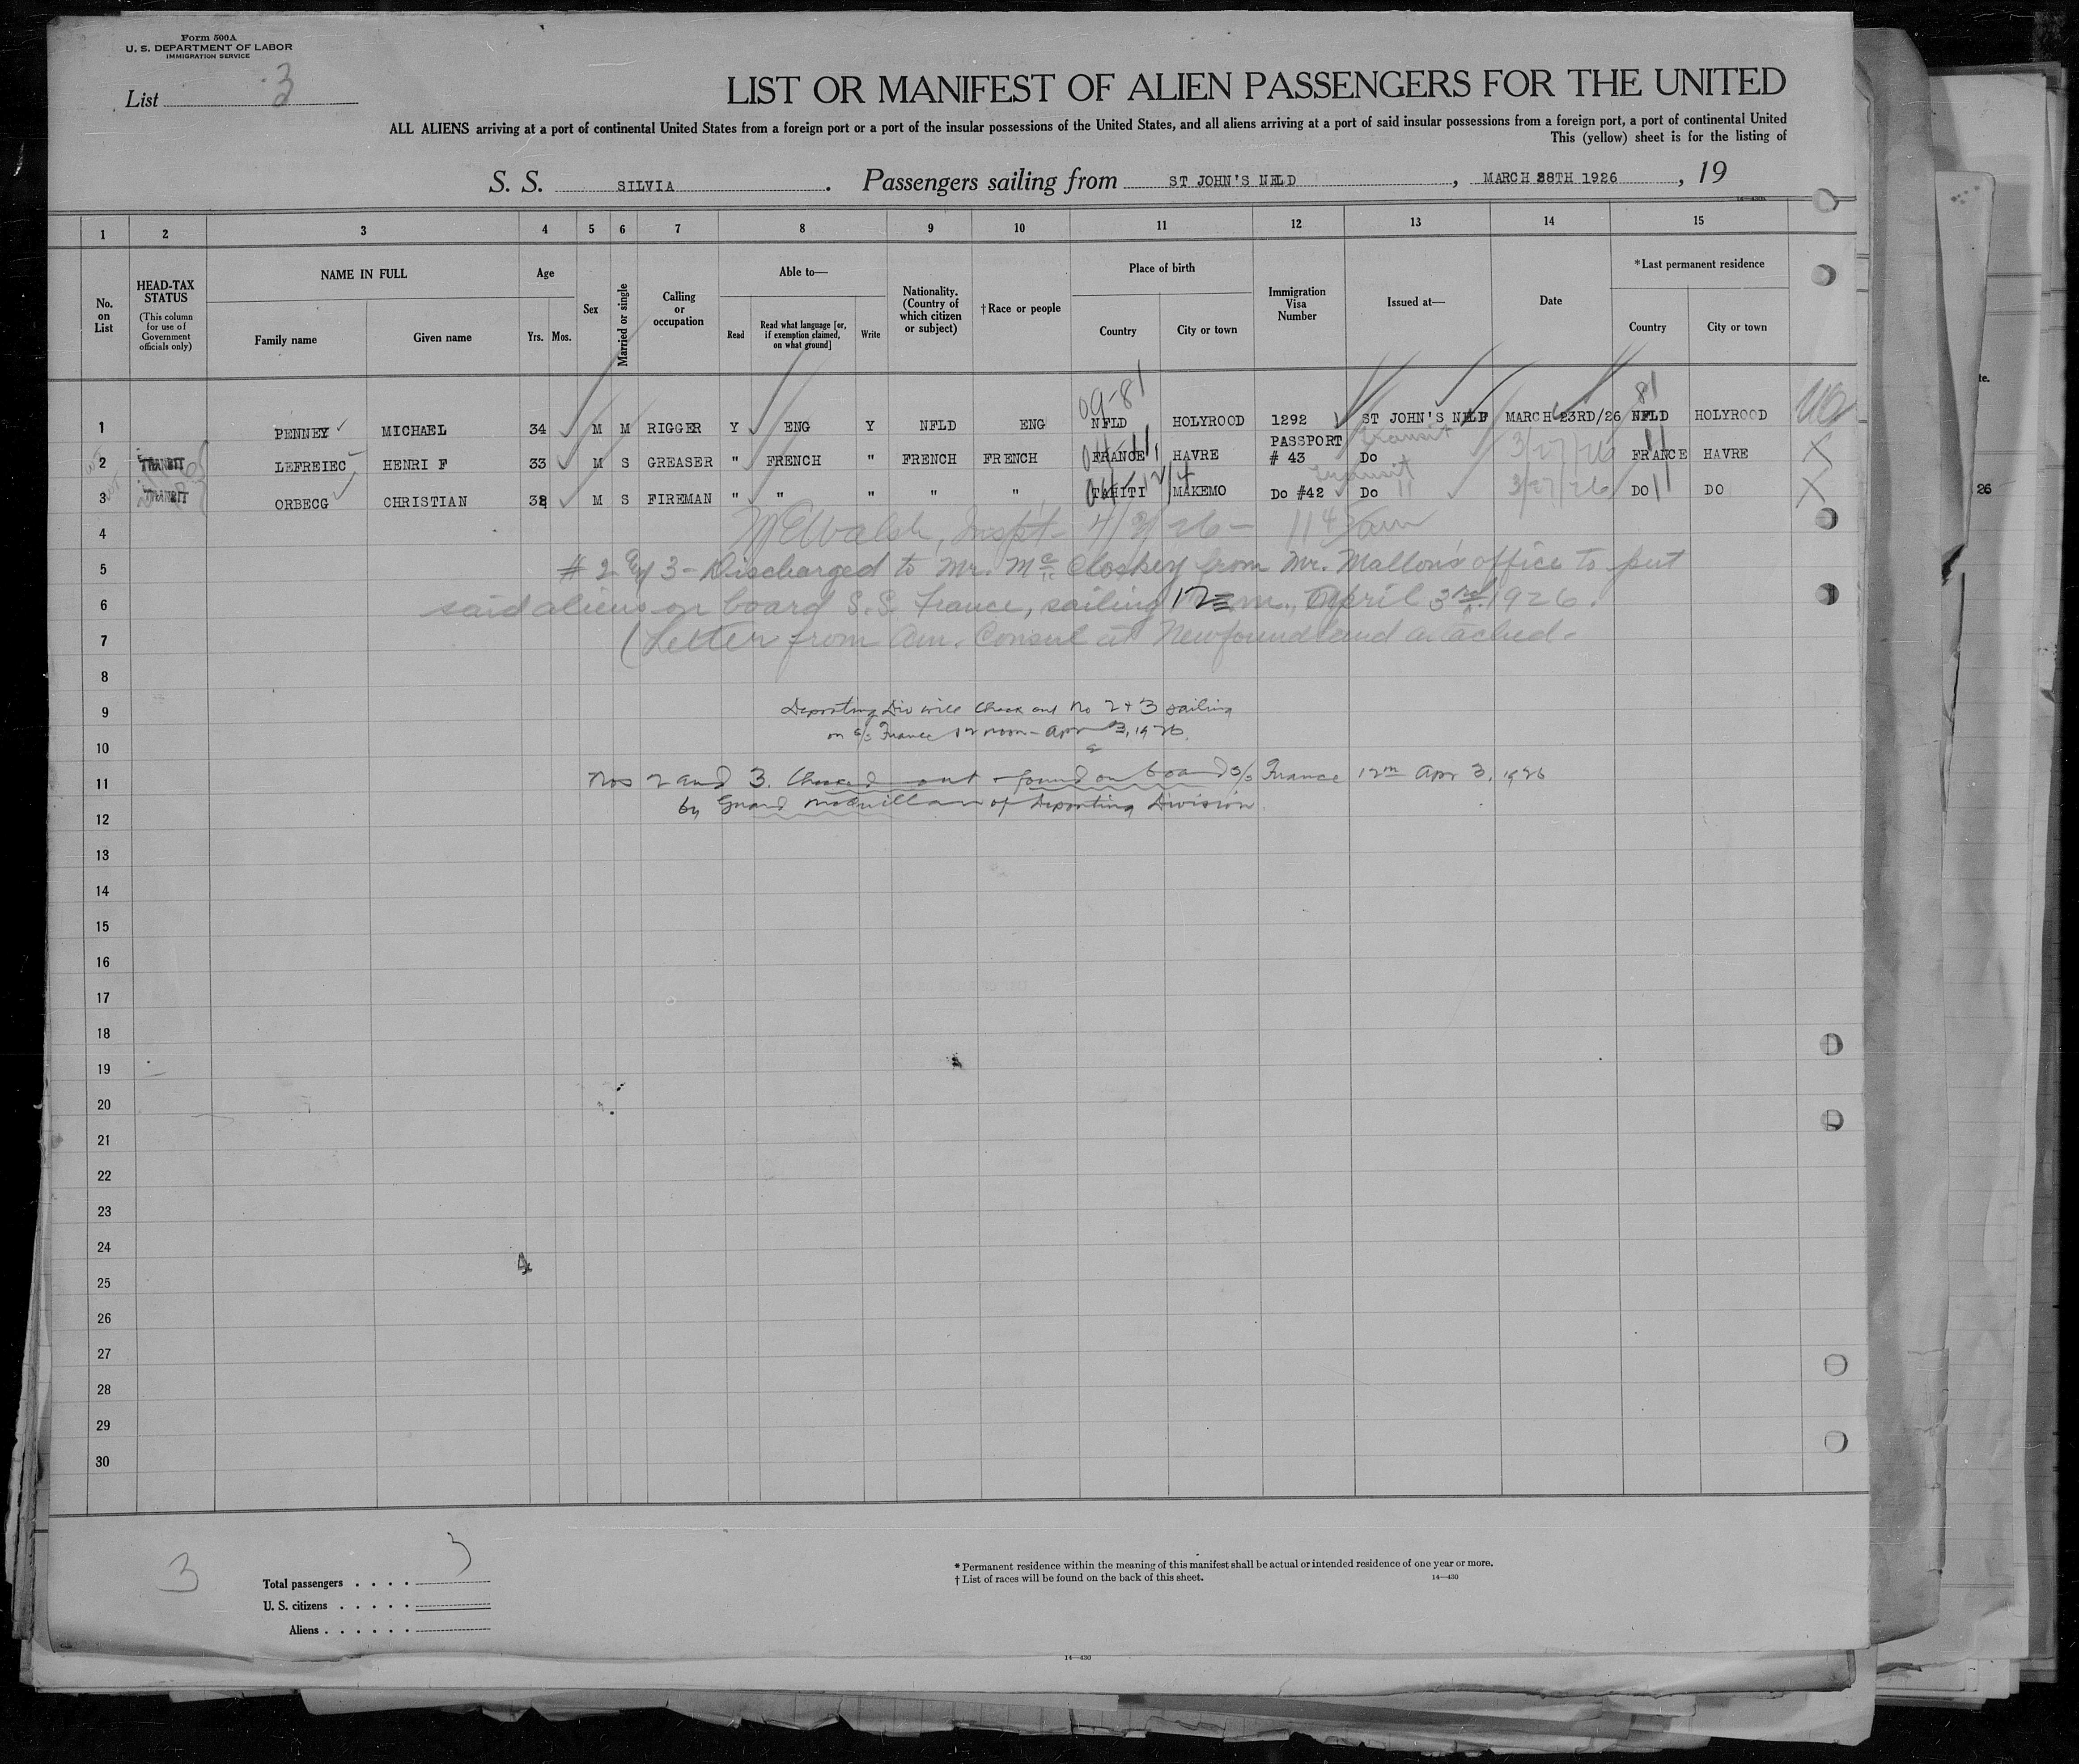 Form 500A
U. S. DEPARTMENT OF LABOR
IMMIGRATION SERVICE
List 3
LIST OR MANIFEST OF ALIEN PASSENGERS FOR THE UNITED
ALL ALIENS arriving at a port of continental United States from a foreign port or a port of the insular possessions of the United States, and all aliens arriving at a port of said insular possessions from a foreign port, a port of continental United
This (yellow) sheet is for the listing of
S. S. SILVIA . Passengers sailing from ST JOHN'S NFLD , MARCH 28TH 1926 , 19
1 2 3 4 5 6 7 8 9 10 11 12 13 14 15
No. on List
HEAD-TAX STATUS (This column for use of Government officials only)
NAME IN FULL
Family name Given name
Age
Yrs. Mos.
Sex
Married or single
Calling or occupation
Able to—
Read Read what language [or, if exemption claimed, on what ground] Write
Nationality. (Country of which citizen or subject)
†Race or people
Place of birth
Country City or town
Immigration Visa Number
Issued at—
Date
*Last permanent residence
Country City or town
09-81 81
1 PENNEY MICHAEL 34 M M RIGGER Y ENG Y NFLD ENG NFLD HOLYROOD 1292 ST JOHN'S NFLD MARCH 23RD/26 NFLD HOLYROOD
2 TRANSIT LEFREIEC HENRI F 33 M S GREASER " FRENCH " FRENCH FRENCH FRANCE HAVRE PASSPORT # 43 Do transit 3/27/26 FRANCE HAVRE X
3 TRANSIT ORBECG CHRISTIAN 38 M S FIREMAN " " " " " TAHITI MAKEMO Do #42 Do transit 3/27/26 DO DO X
4 Walsh, Inspt- 4/2/26-
5 # 2 & 3 - Discharged to Mr. McCloskey from Mr. Mallon's office to put
6 said aliens on board S.S. France, sailing 12 m., April 3rd 1926.
7 (Letter from Am. Consul at Newfoundland attached.
8
9 Deporting Div will check out No 2 + 3 sailing
10 on S/S France 12 noon - Apr 3, 1926.
11 Nos 2 and 3. Checked out - found on board S/S France 12m Apr 3, 1926
12 by Guard McQuillan of Deporting Division
13
14
15
16
17
18
19
20
21
22
23
24
25
26
27
28
29
30
4
3
Total passengers . . . . 3
U. S. citizens . . . . .
Aliens . . . . . .
* Permanent residence within the meaning of this manifest shall be actual or intended residence of one year or more.
† List of races will be found on the back of this sheet. 14—430
14—430
te.
26